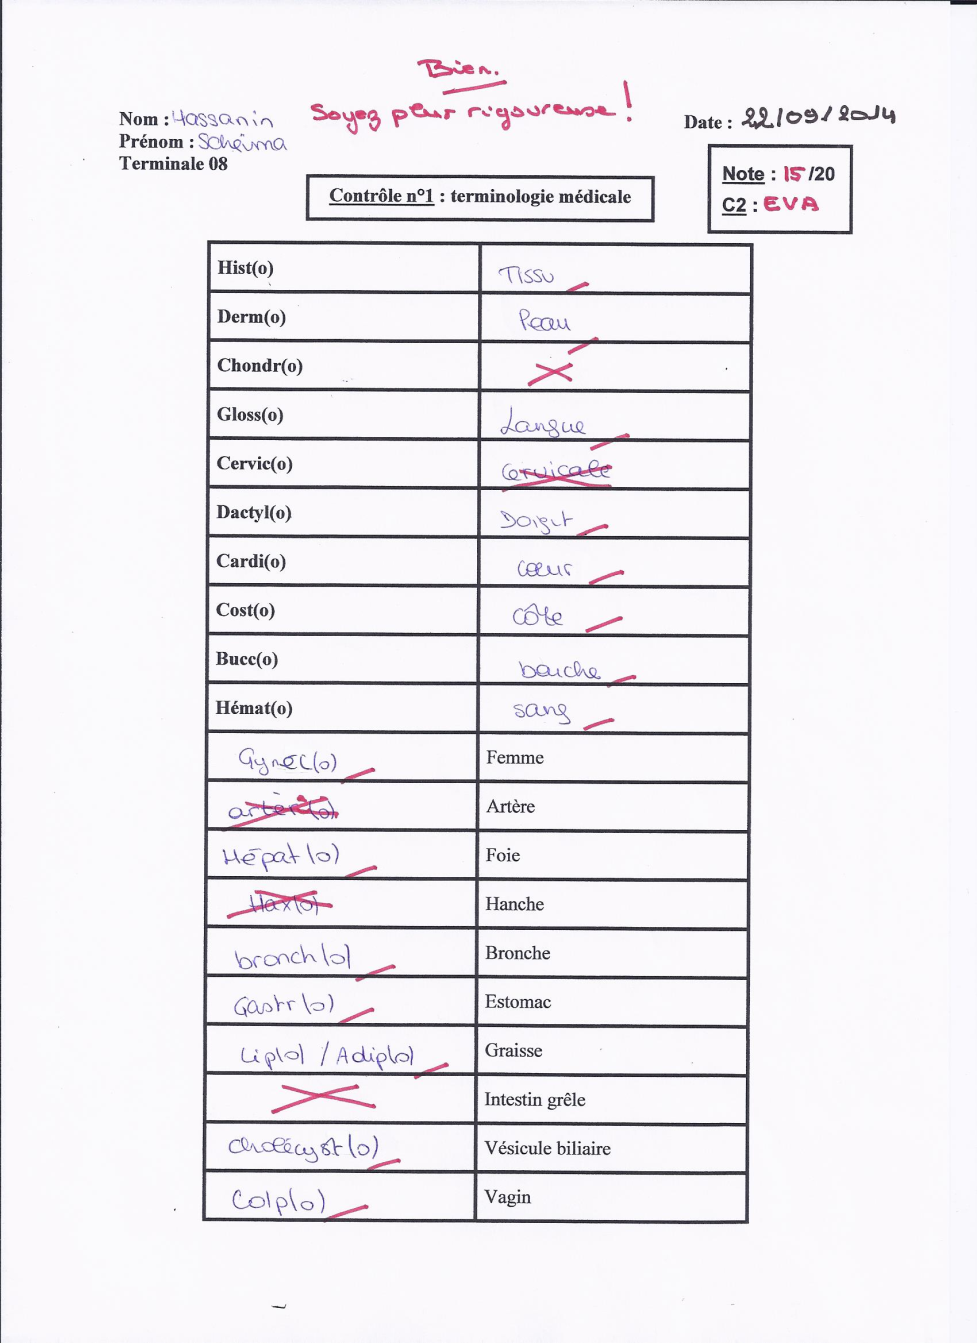 Bien.
Soyez plus rigoureuse !
Nom : Hassanin
Prénom : Scheïma
Terminale 08
Date : 22/09/2014
Note : 15/20
C2 : EVA
Contrôle n°1 : terminologie médicale
Hist(o) Tissu
Derm(o) Peau
Chondr(o)
Gloss(o) Langue
Cervic(o) Cervicale
Dactyl(o) Doigt
Cardi(o) cœur
Cost(o) Côte
Bucc(o) bouche
Hémat(o) sang
Gynéc(o) Femme
artèr(o) Artère
Hépat(o) Foie
Hax(o) Hanche
bronch(o) Bronche
Gastr(o) Estomac
Lip(o) / Adip(o) Graisse
Intestin grêle
cholécyst(o) Vésicule biliaire
Colp(o) Vagin